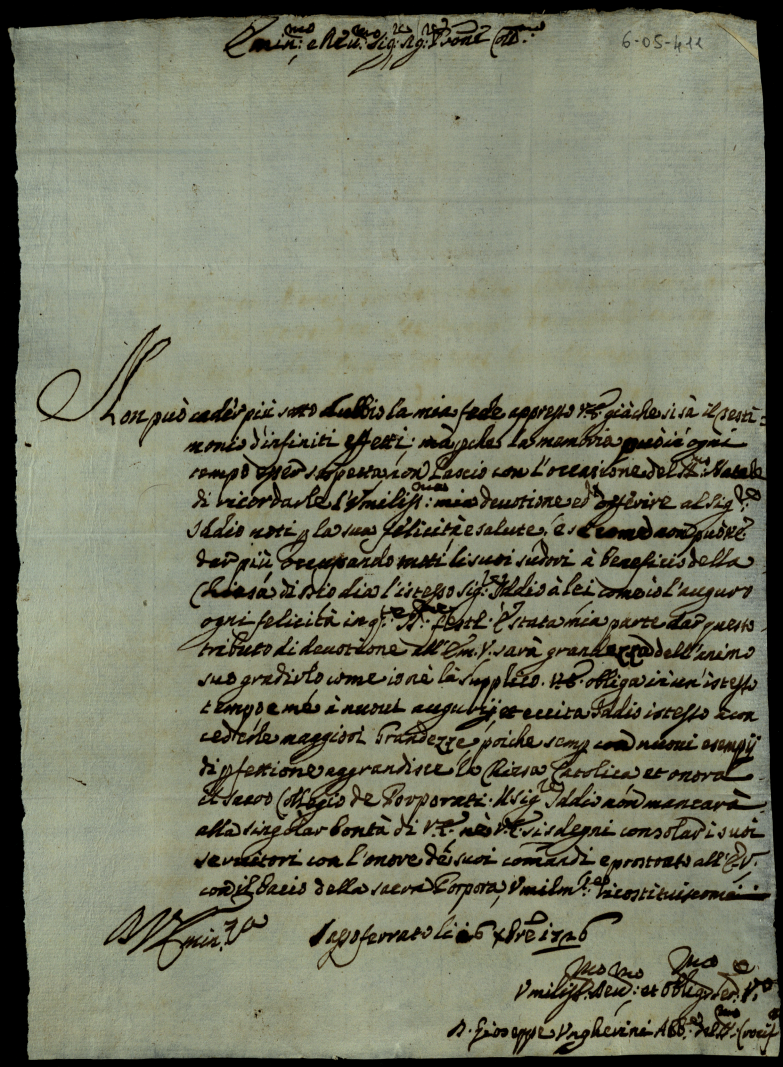 Emin.mo e Reu.mo Sig.re Sig.re P̃rone Coll.mo
6-05-411
Non può cader più sotto dubbio la mia fede appresso V.E. già che si sà il testi=
monio d'infiniti effetti; mà p̃che la memoria può in ogni
tempo esser sospetta, non lascio con l'occasione del S.mo Natale
di ricordarle l'Vmiliss.ma mia deuotione, ed offerire al Sig.re
Iddio uoti p la sua felicità e salute, e si come non può V.E.
dar più occupando tutti li suoi sudori à beneficio della
Chiesa di Dio dia l'istesso Sig.re Iddio à lei come io l'auguro
ogni felicità in q.te S.me feste. È stata mia parte dar questo
tributo di deuotione all'Em. V. sarà grandezza dell'animo
suo gradirlo come io nè la supplico. V.E. obliga in un'istesso
tempo e mé à nuoui augurij et eccita Iddio istesso à con
cederle maggiori Grandezze, poiche semp con nuoui esempij
di pfettione aggrandisce la Chiesa Catolica et onora
il Sacro Collegio de Porporati. Il Sig.re Iddio non mancarà
alla singolar bontà di V.E. nè V.E. si sdegni consolar i suoi
seruitori con l'onore de suoi comandi e prostrato all'E.V.
con il bacio della sacra Porpora, Vmilm.te
Di V. Emin.za Sassoferrato li 16 Xbre 1726
Vmiliss. Deu.mo et Oblig.mo Ser. V.o
D. Gioseppe Vngherini Abb.e del S.mo Crocif.o